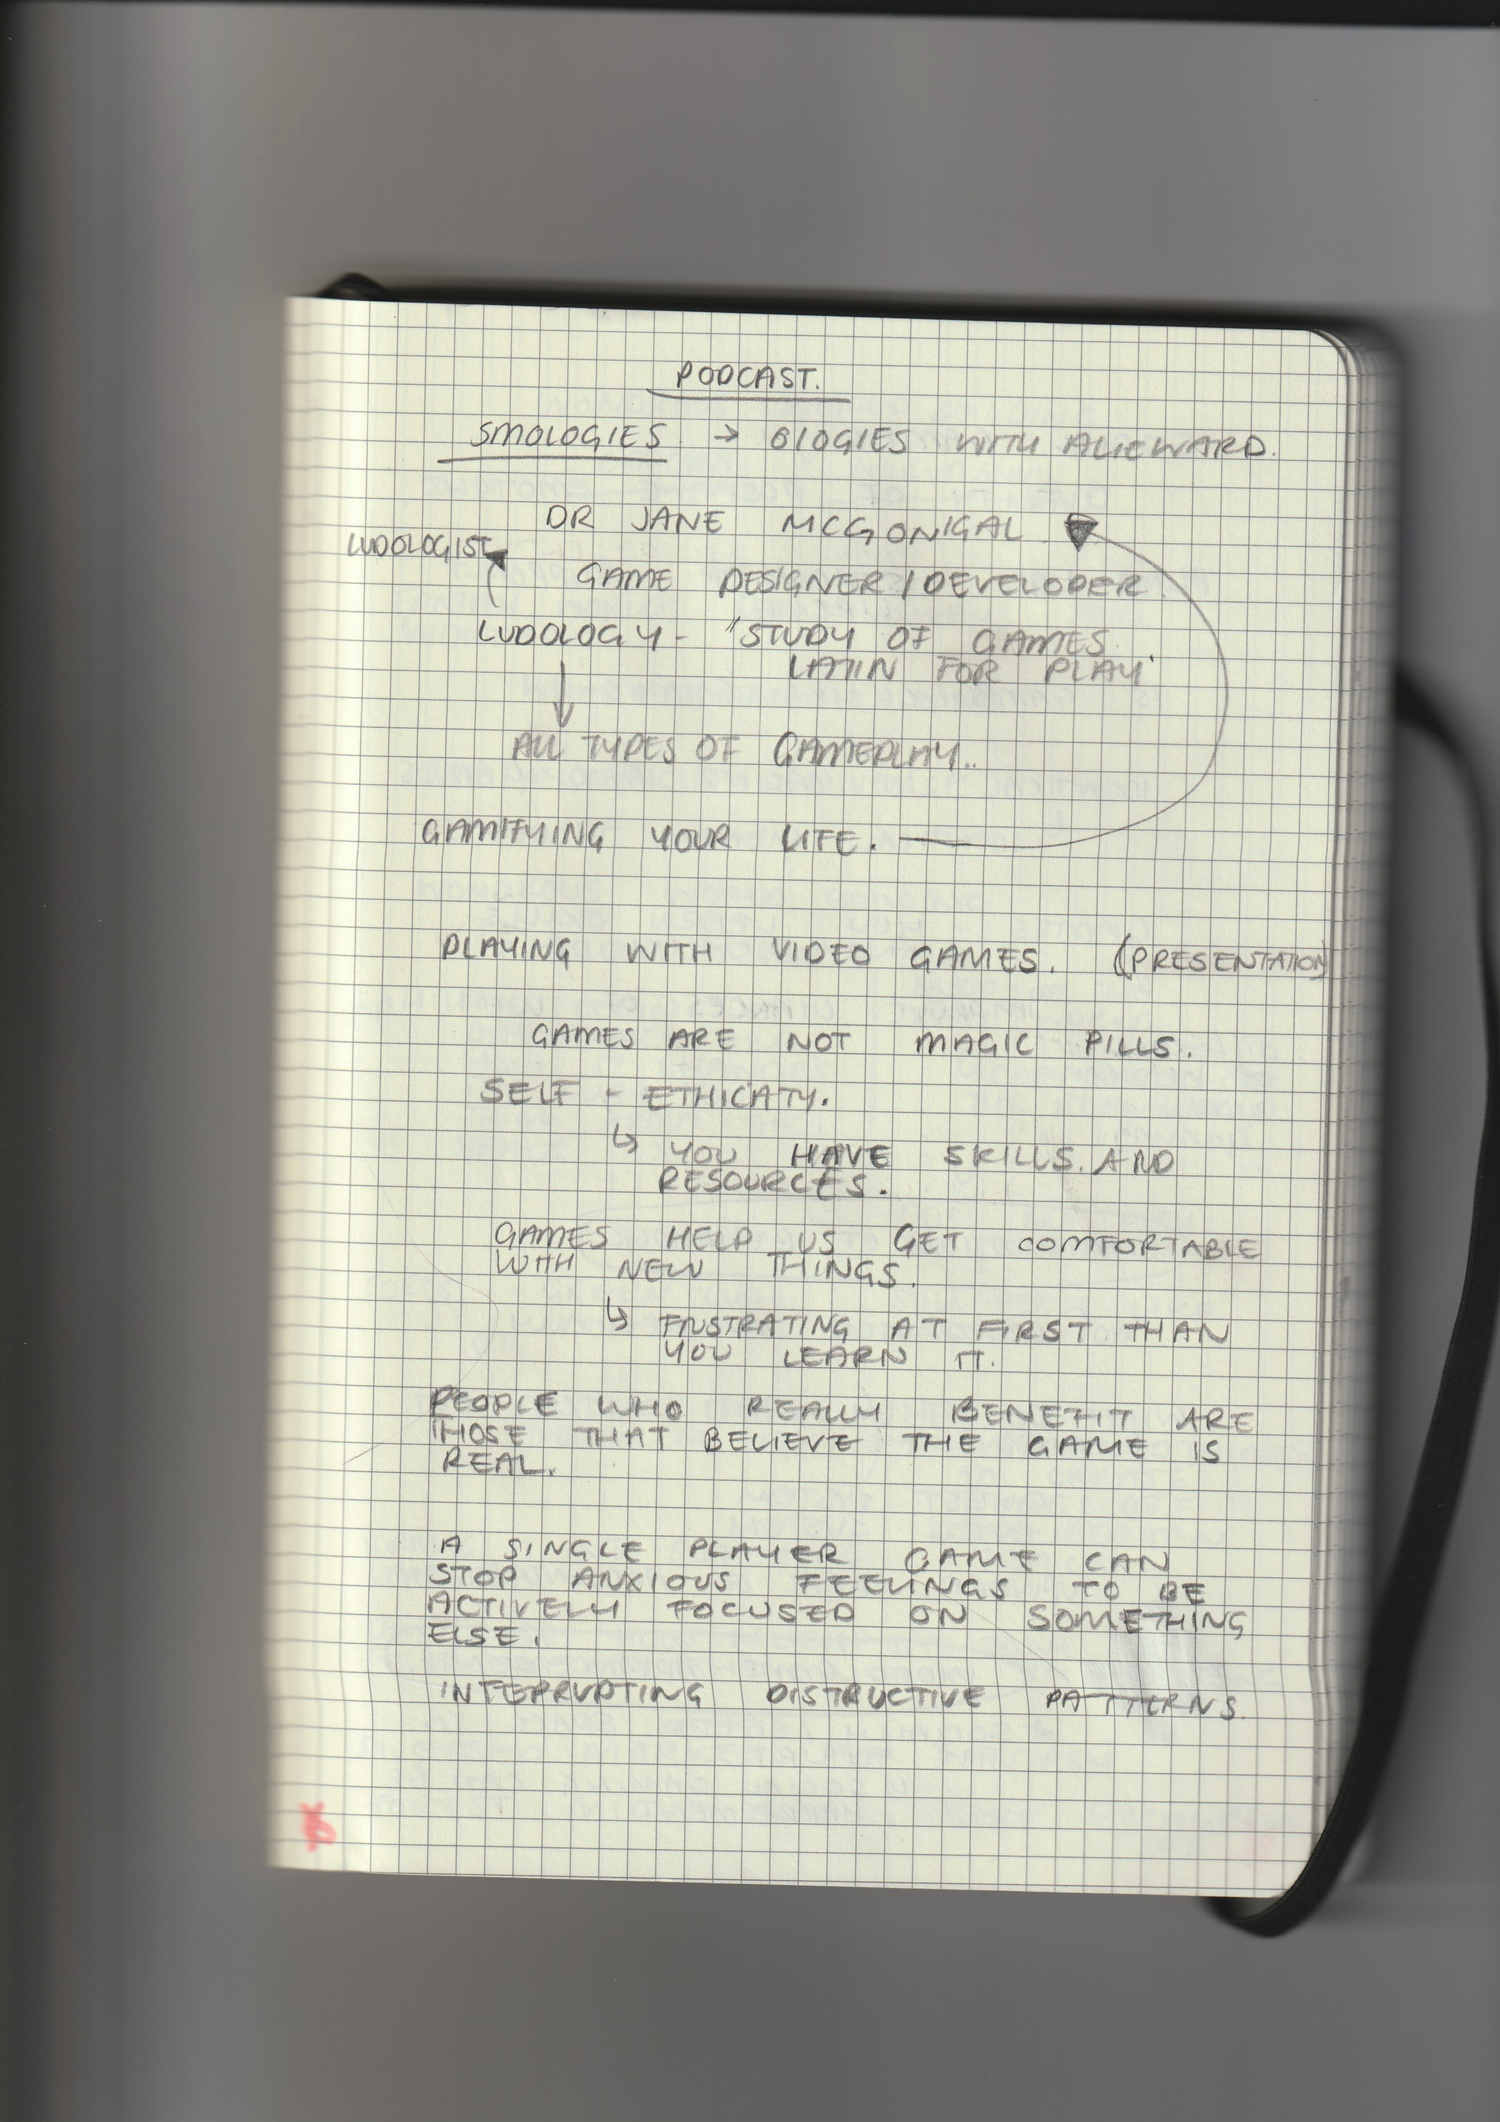 PODCAST.
SMOLOGIES → OLOGIES WITH ALIEWARD.
DR JANE MCGONIGAL
LUDOLOGIST
GAME DESIGNER/DEVELOPER
LUDOLOGY - "STUDY OF GAMES.
LATIN FOR PLAY.
↓
ALL TYPES OF GAMEPLAY..
GAMIFYING YOUR LIFE.
PLAYING WITH VIDEO GAMES. (PRESENTATION)
GAMES ARE NOT MAGIC PILLS.
SELF - ETHICATY.
↳ YOU HAVE SKILLS AND
RESOURCES.
GAMES HELP US GET COMFORTABLE
WITH NEW THINGS.
↳ FRUSTRATING AT FIRST THAN
YOU LEARN IT.
PEOPLE WHO REALLY BENEFIT ARE
THOSE THAT BELIEVE THE GAME IS
REAL.
A SINGLE PLAYER GAME CAN
STOP ANXIOUS FEELINGS TO BE
ACTIVELY FOCUSED ON SOMETHING
ELSE.
INTERRUPTING DISTRUCTIVE PATTERNS.